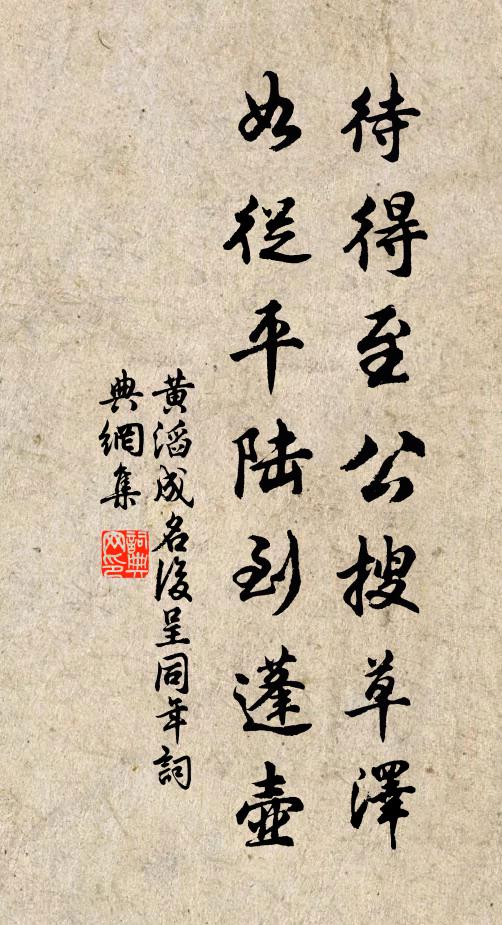 待得至公搜草澤
如從平陆到蓬壺
黄滔成名後呈同年詞
典網集
詞典
网印